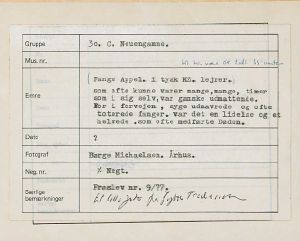 Gruppe 3o. C. Neuengamme.
Mus. nr.
Emne
(Fangs Appel. i tysk KZ. lejrer.)
som ofte kunne varer mange,mange, timer
som i sig selv,var ganske udmattende.
for i forvejen , syge udmavrede og ofte
toterede fanger. var det en lidelse og et
helvede .som ofte medførte Døden.
Dato ?
Fotograf Børge Michaelsen. Århus.
Neg. nr. % Negt.
Særlige bemærkninger
Frøslev nr. 9/??.